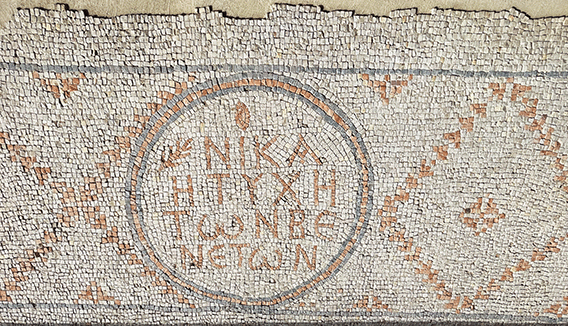 ΝΙΚΑ
ΗΤΥΧΗ
ΤωΝΒΕ
ΝΕΤωΝ